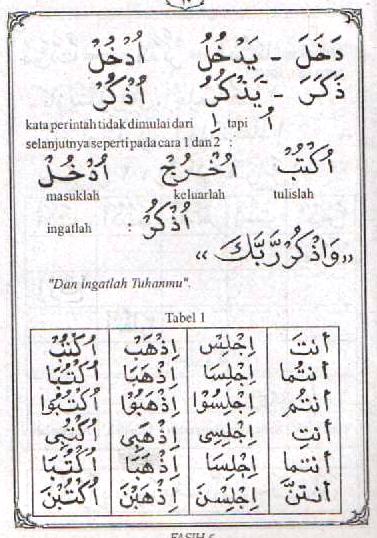 دَخَلَ - يَدْخُلُ اُدْخُلْ
ذَكَرَ - يَذْكُرُ اُذْكُرْ
kata perintah tidak dimulai dari اِ tapi اُ
selanjutnya seperti pada cara 1 dan 2 :
اُكْتُبْ اُخْرُجْ اُدْخُلْ
masuklah keluarlah tulislah
ingatlah : اُذْكُرْ
«وَاذْكُرْ رَّبَّكَ»
"Dan ingatlah Tuhanmu".
Tabel 1
أَنْتَ اِجْلِسْ اِذْهَبْ اُكْتُبْ
أَنْتُمَا اِجْلِسَا اِذْهَبَا اُكْتُبَا
أَنْتُمْ اِجْلِسُوْا اِذْهَبُوْا اُكْتُبُوْا
أَنْتِ اِجْلِسِى اِذْهَبِى اُكْتُبِى
أَنْتُمَا اِجْلِسَا اِذْهَبَا اُكْتُبَا
أَنْتُنَّ اِجْلِسْنَ اِذْهَبْنَ اُكْتُبْنَ
FASIH 6